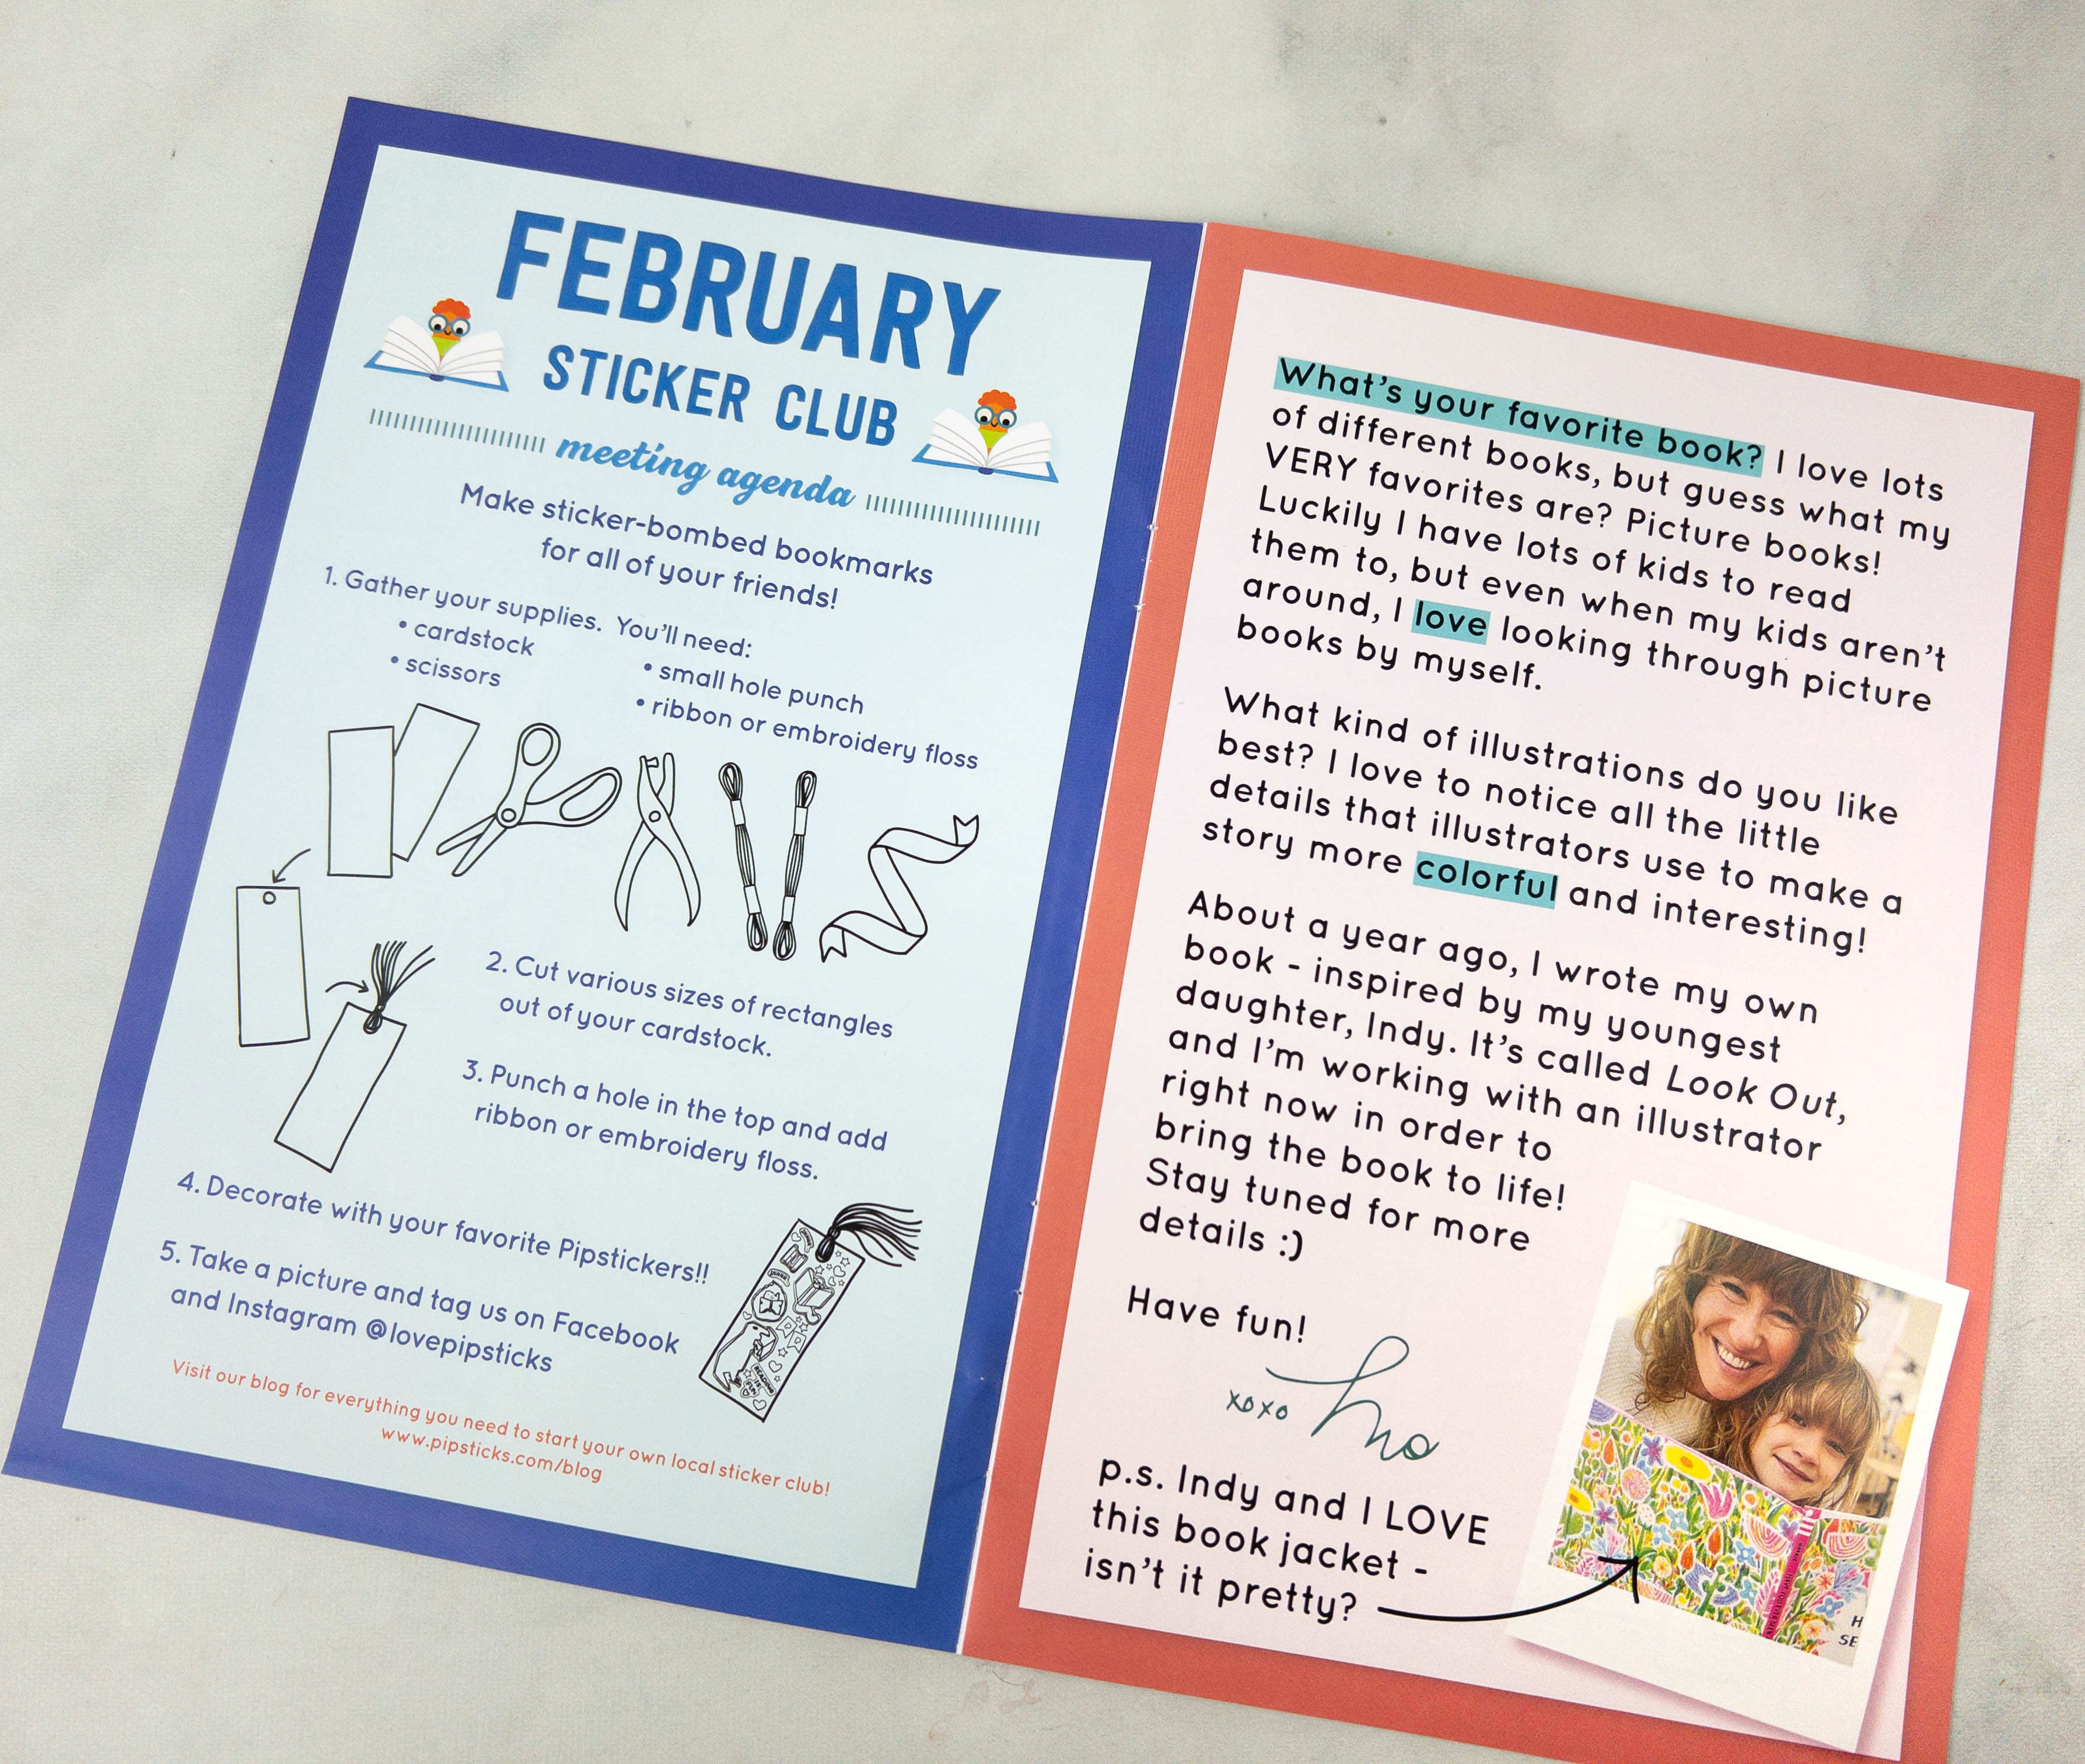 FEBRUARY
STICKER CLUB
meeting agenda
Make sticker-bombed bookmarks
for all of your friends!
1. Gather your supplies. You'll need:
• cardstock
• scissors
• small hole punch
• ribbon or embroidery floss
2. Cut various sizes of rectangles
out of your cardstock.
3. Punch a hole in the top and add
ribbon or embroidery floss.
4. Decorate with your favorite Pipstickers!!
5. Take a picture and tag us on Facebook
and Instagram @lovepipsticks
READING
IS
FUN
Visit our blog for everything you need to start your own local sticker club!
www.pipsticks.com/blog
What's your favorite book? I love lots
of different books, but guess what my
VERY favorites are? Picture books!
Luckily I have lots of kids to read
them to, but even when my kids aren't
around, I love looking through picture
books by myself.
What kind of illustrations do you like
best? I love to notice all the little
details that illustrators use to make a
story more colorful and interesting!
About a year ago, I wrote my own
book - inspired by my youngest
daughter, Indy. It's called Look Out,
and I'm working with an illustrator
right now in order to
bring the book to life!
Stay tuned for more
details :)
Have fun!
xoxo Mo
p.s. Indy and I LOVE
this book jacket -
isn't it pretty?
H
SE